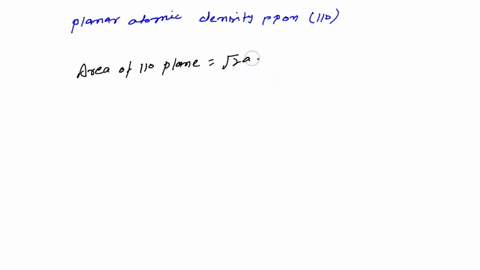 planar atomic density ppon (110)
Area of 110 plane = √2a.